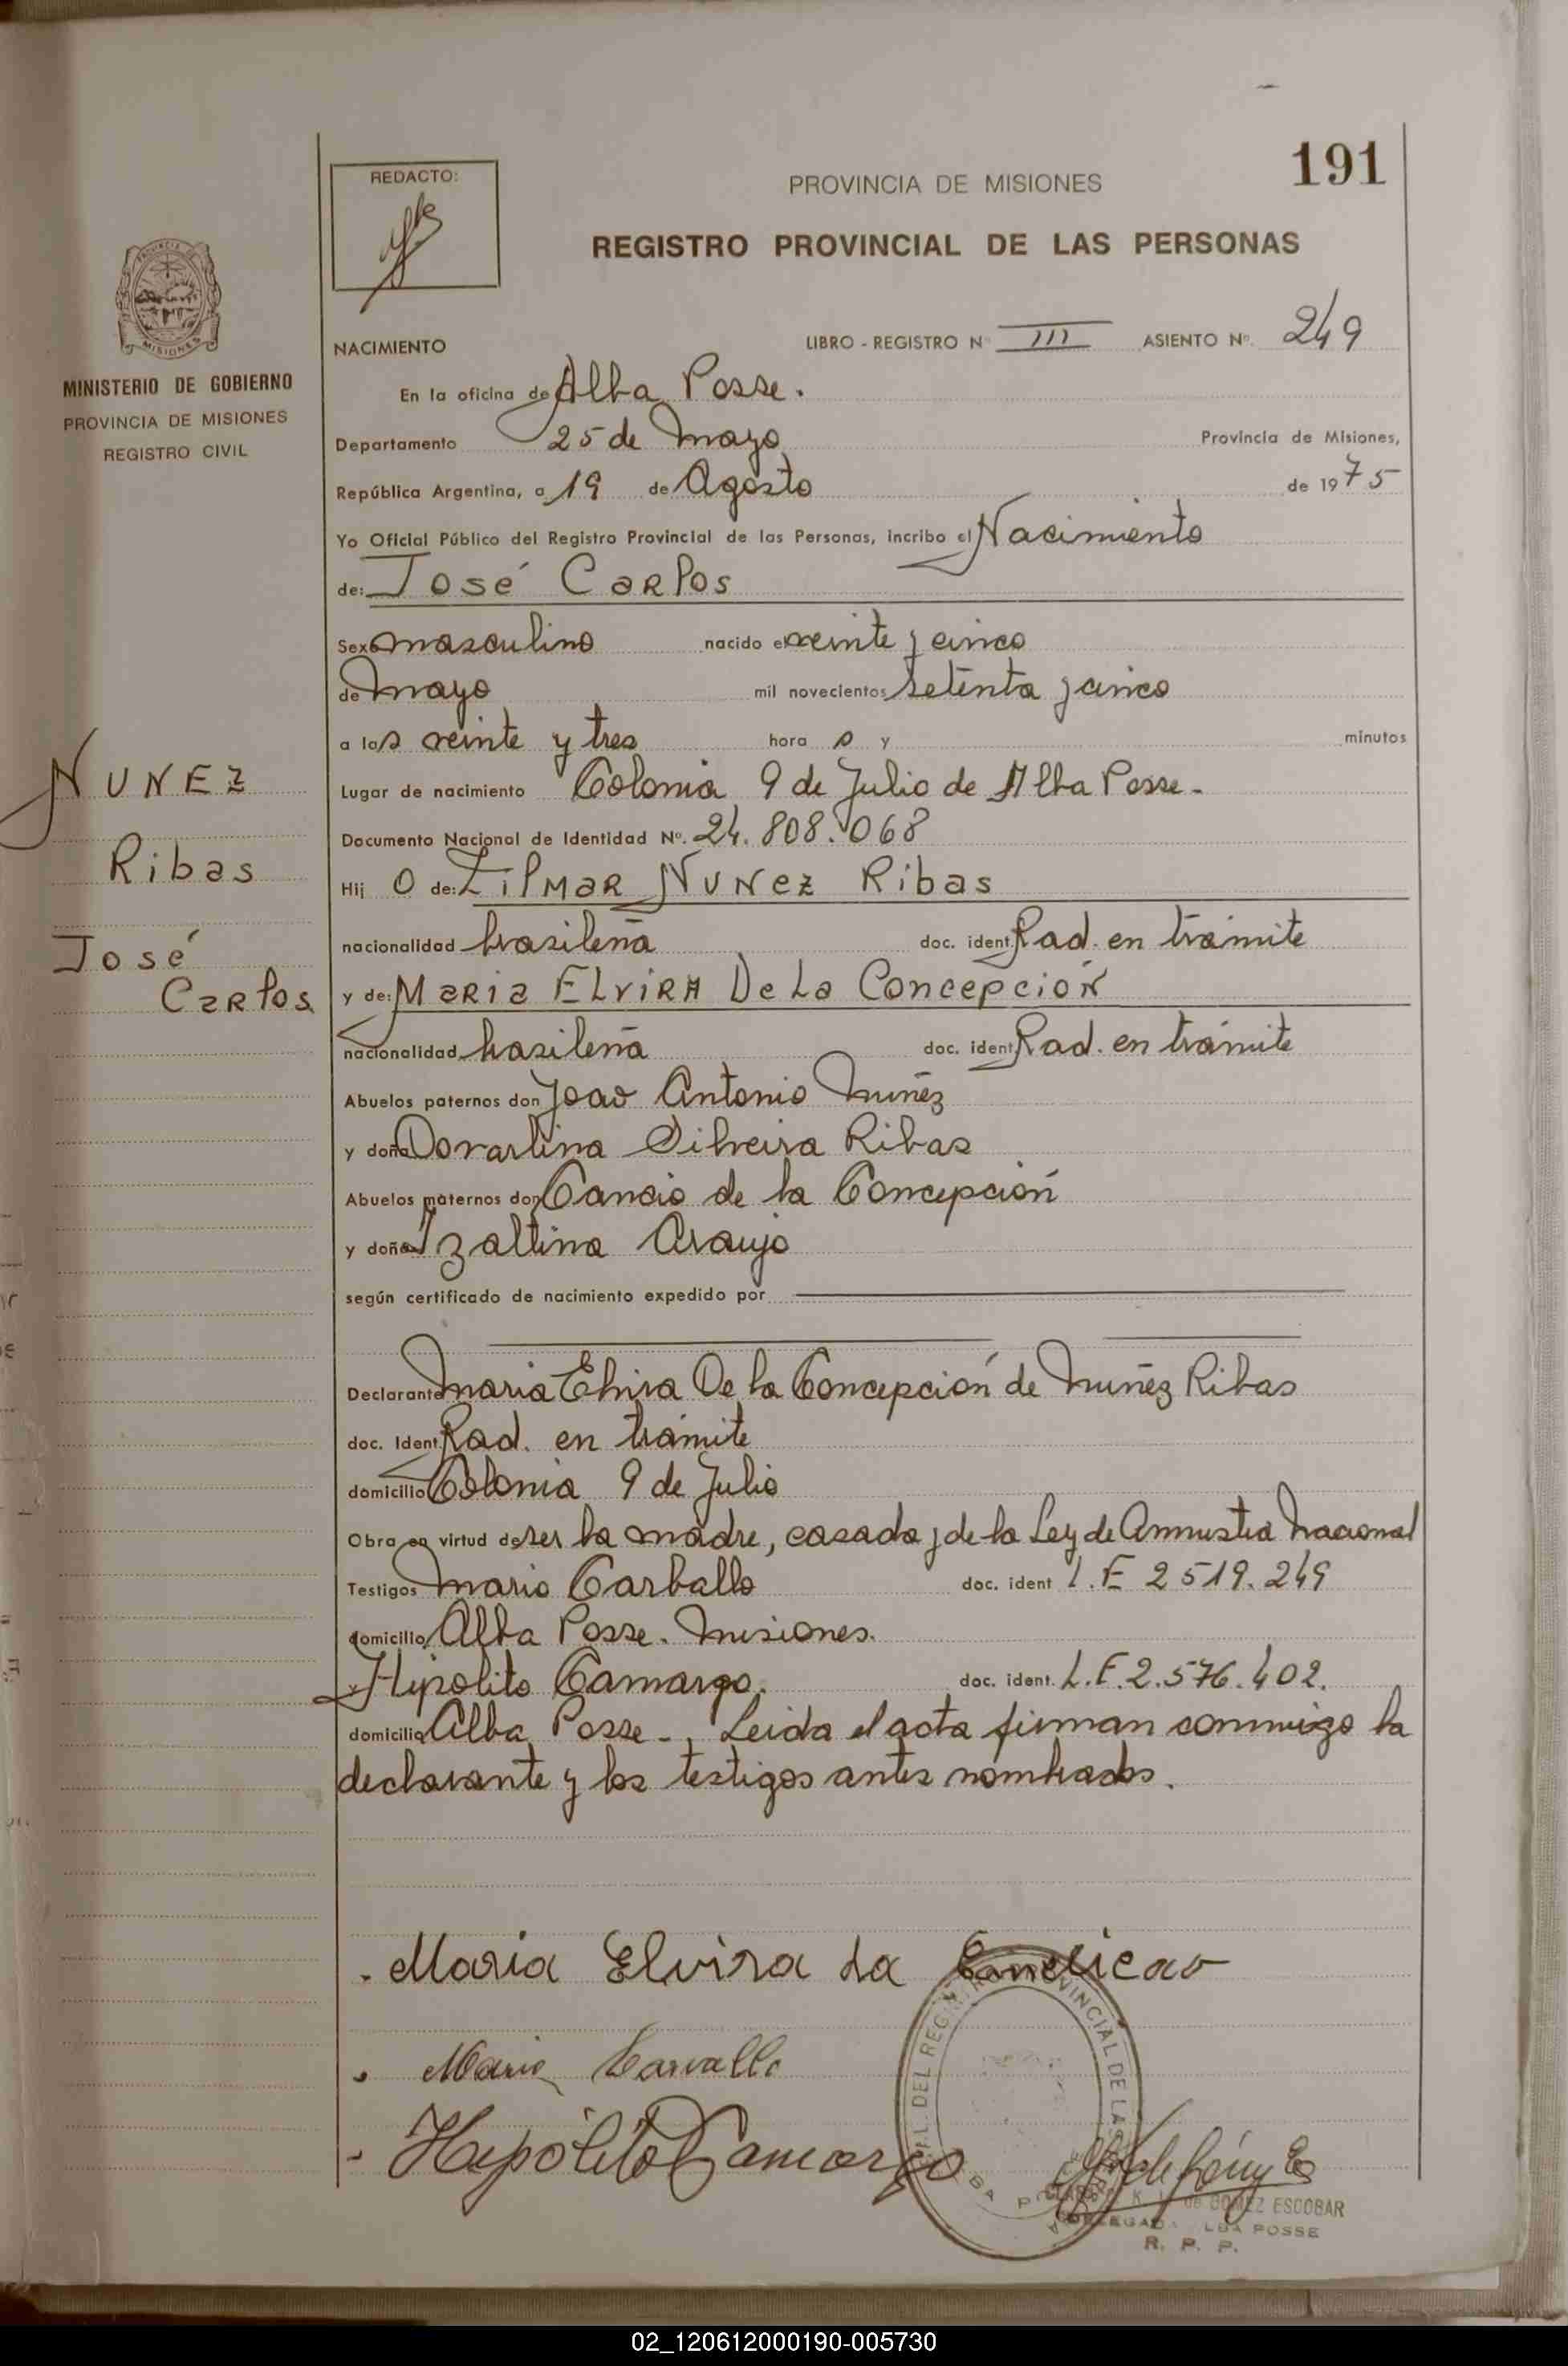 191
REDACTO:
PROVINCIA DE MISIONES
REGISTRO PROVINCIAL DE LAS PERSONAS
MINISTERIO DE GOBIERNO
PROVINCIA DE MISIONES
REGISTRO CIVIL
NACIMIENTO LIBRO - REGISTRO Nº III ASIENTO Nº. 249
En la oficina de Alba Posse.
Departamento 25 de Mayo Provincia de Misiones,
República Argentina, a 19 de Agosto de 1975
Yo Oficial Público del Registro Provincial de las Personas, incribo el Nacimiento
de: José Carlos
Sexo masculino nacido el veinte y cinco
de Mayo mil novecientos setenta y cinco
a las veinte y tres hora s y minutos
Lugar de nacimiento Colonia 9 de Julio de Alba Posse.
Documento Nacional de Identidad Nº. 24.808.068
Hij o de: Zilmar Nunez Ribas
nacionalidad brasileña doc. ident. Rad. en trámite
y de: Maria Elvira De La Concepción
nacionalidad brasileña doc. ident. Rad. en trámite
Abuelos paternos don Joao Antonio Nuñez
y doña Dorarlina Silveira Ribas
Abuelos maternos don Cancio de la Concepción
y doña Izaltina Araujo
según certificado de nacimiento expedido por
Declarante Maria Elvira De la Concepción de Nuñez Ribas
doc. Ident. Rad. en trámite
domicilio Colonia 9 de Julio
Obra en virtud de ser la madre, casada y de la Ley de Amnistia Nacional
Testigos Mario Carballo doc. ident L.E 2519.249
domicilio Alba Posse. Misiones.
y Hipolito Camargo. doc. ident. L.E.2.576.402.
domicilio Alba Posse. Leida el acta firman conmigo la
declarante y los testigos antes nombrados.
NUNEZ
Ribas
José
Carlos
Maria Elvira da Conceicao
Mario Carvallo
Hipólito Camargo
DEL REGISTRO PROVINCIAL DE LAS
GOMEZ ESCOBAR
DELEGADA ALBA POSSE
R. P. P.
02_120612000190-005730